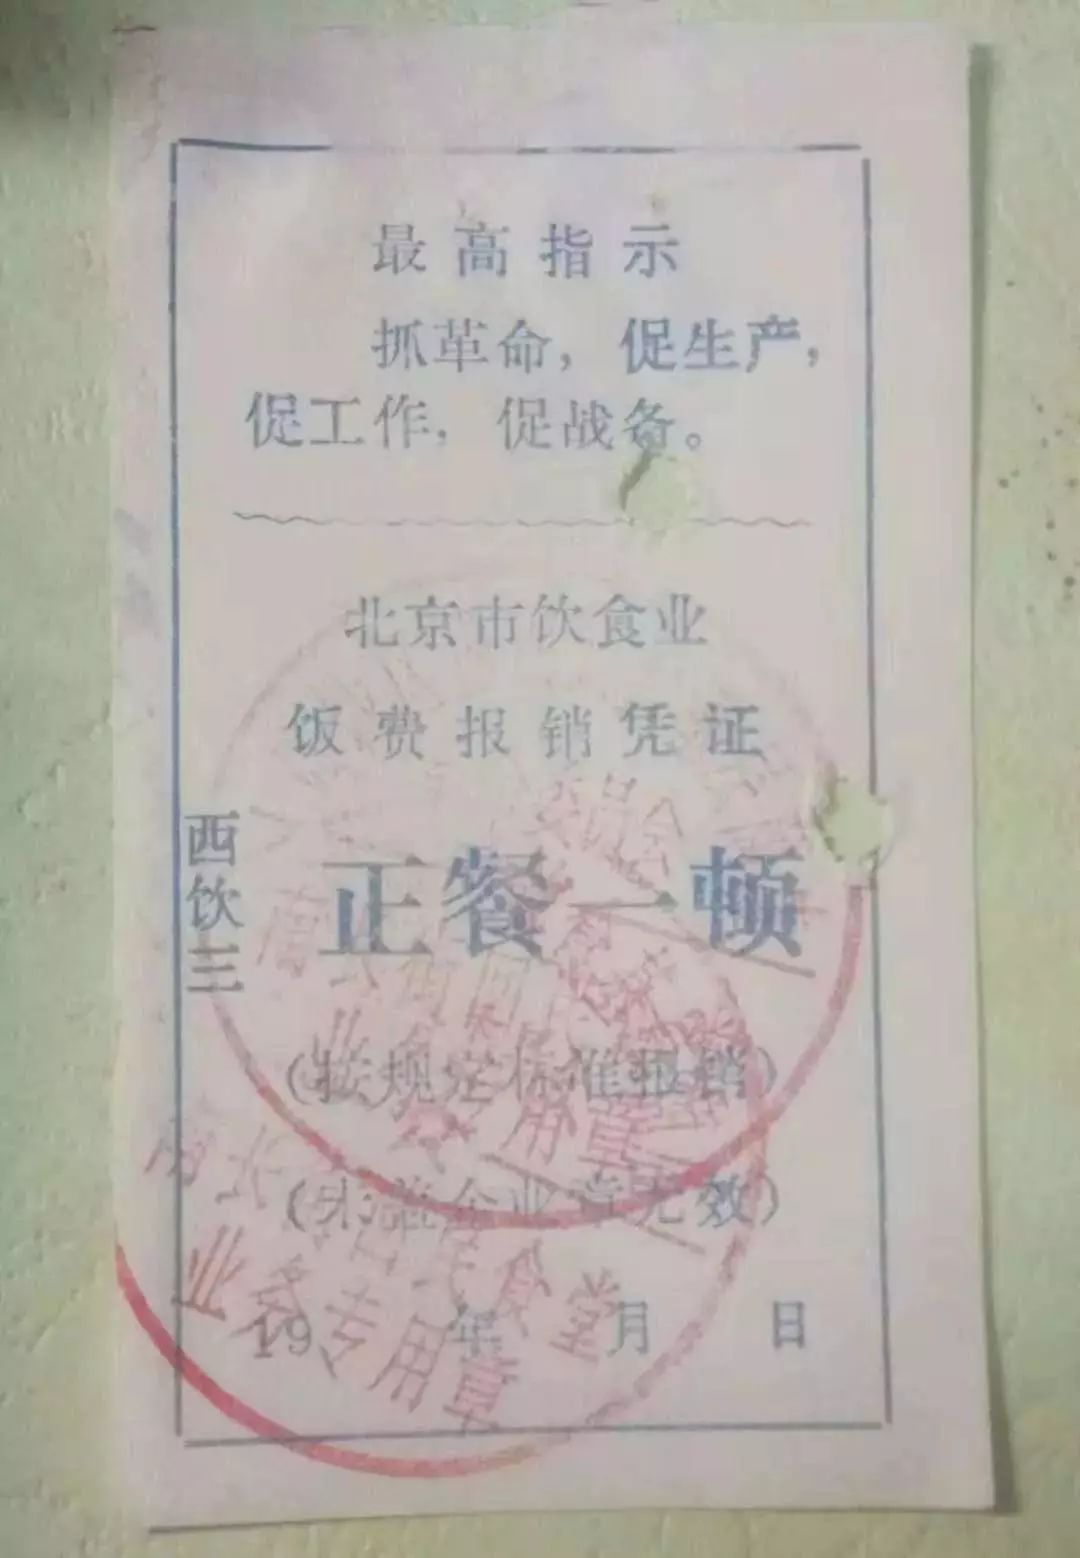 最高指示
抓革命，促生产，
促工作，促战备。
北京市饮食业
饭费报销凭证
西饮三
正餐一顿
(按规定标准报销)
(未盖企业章无效)
19 年 月 日
业务专用章
食堂
用章